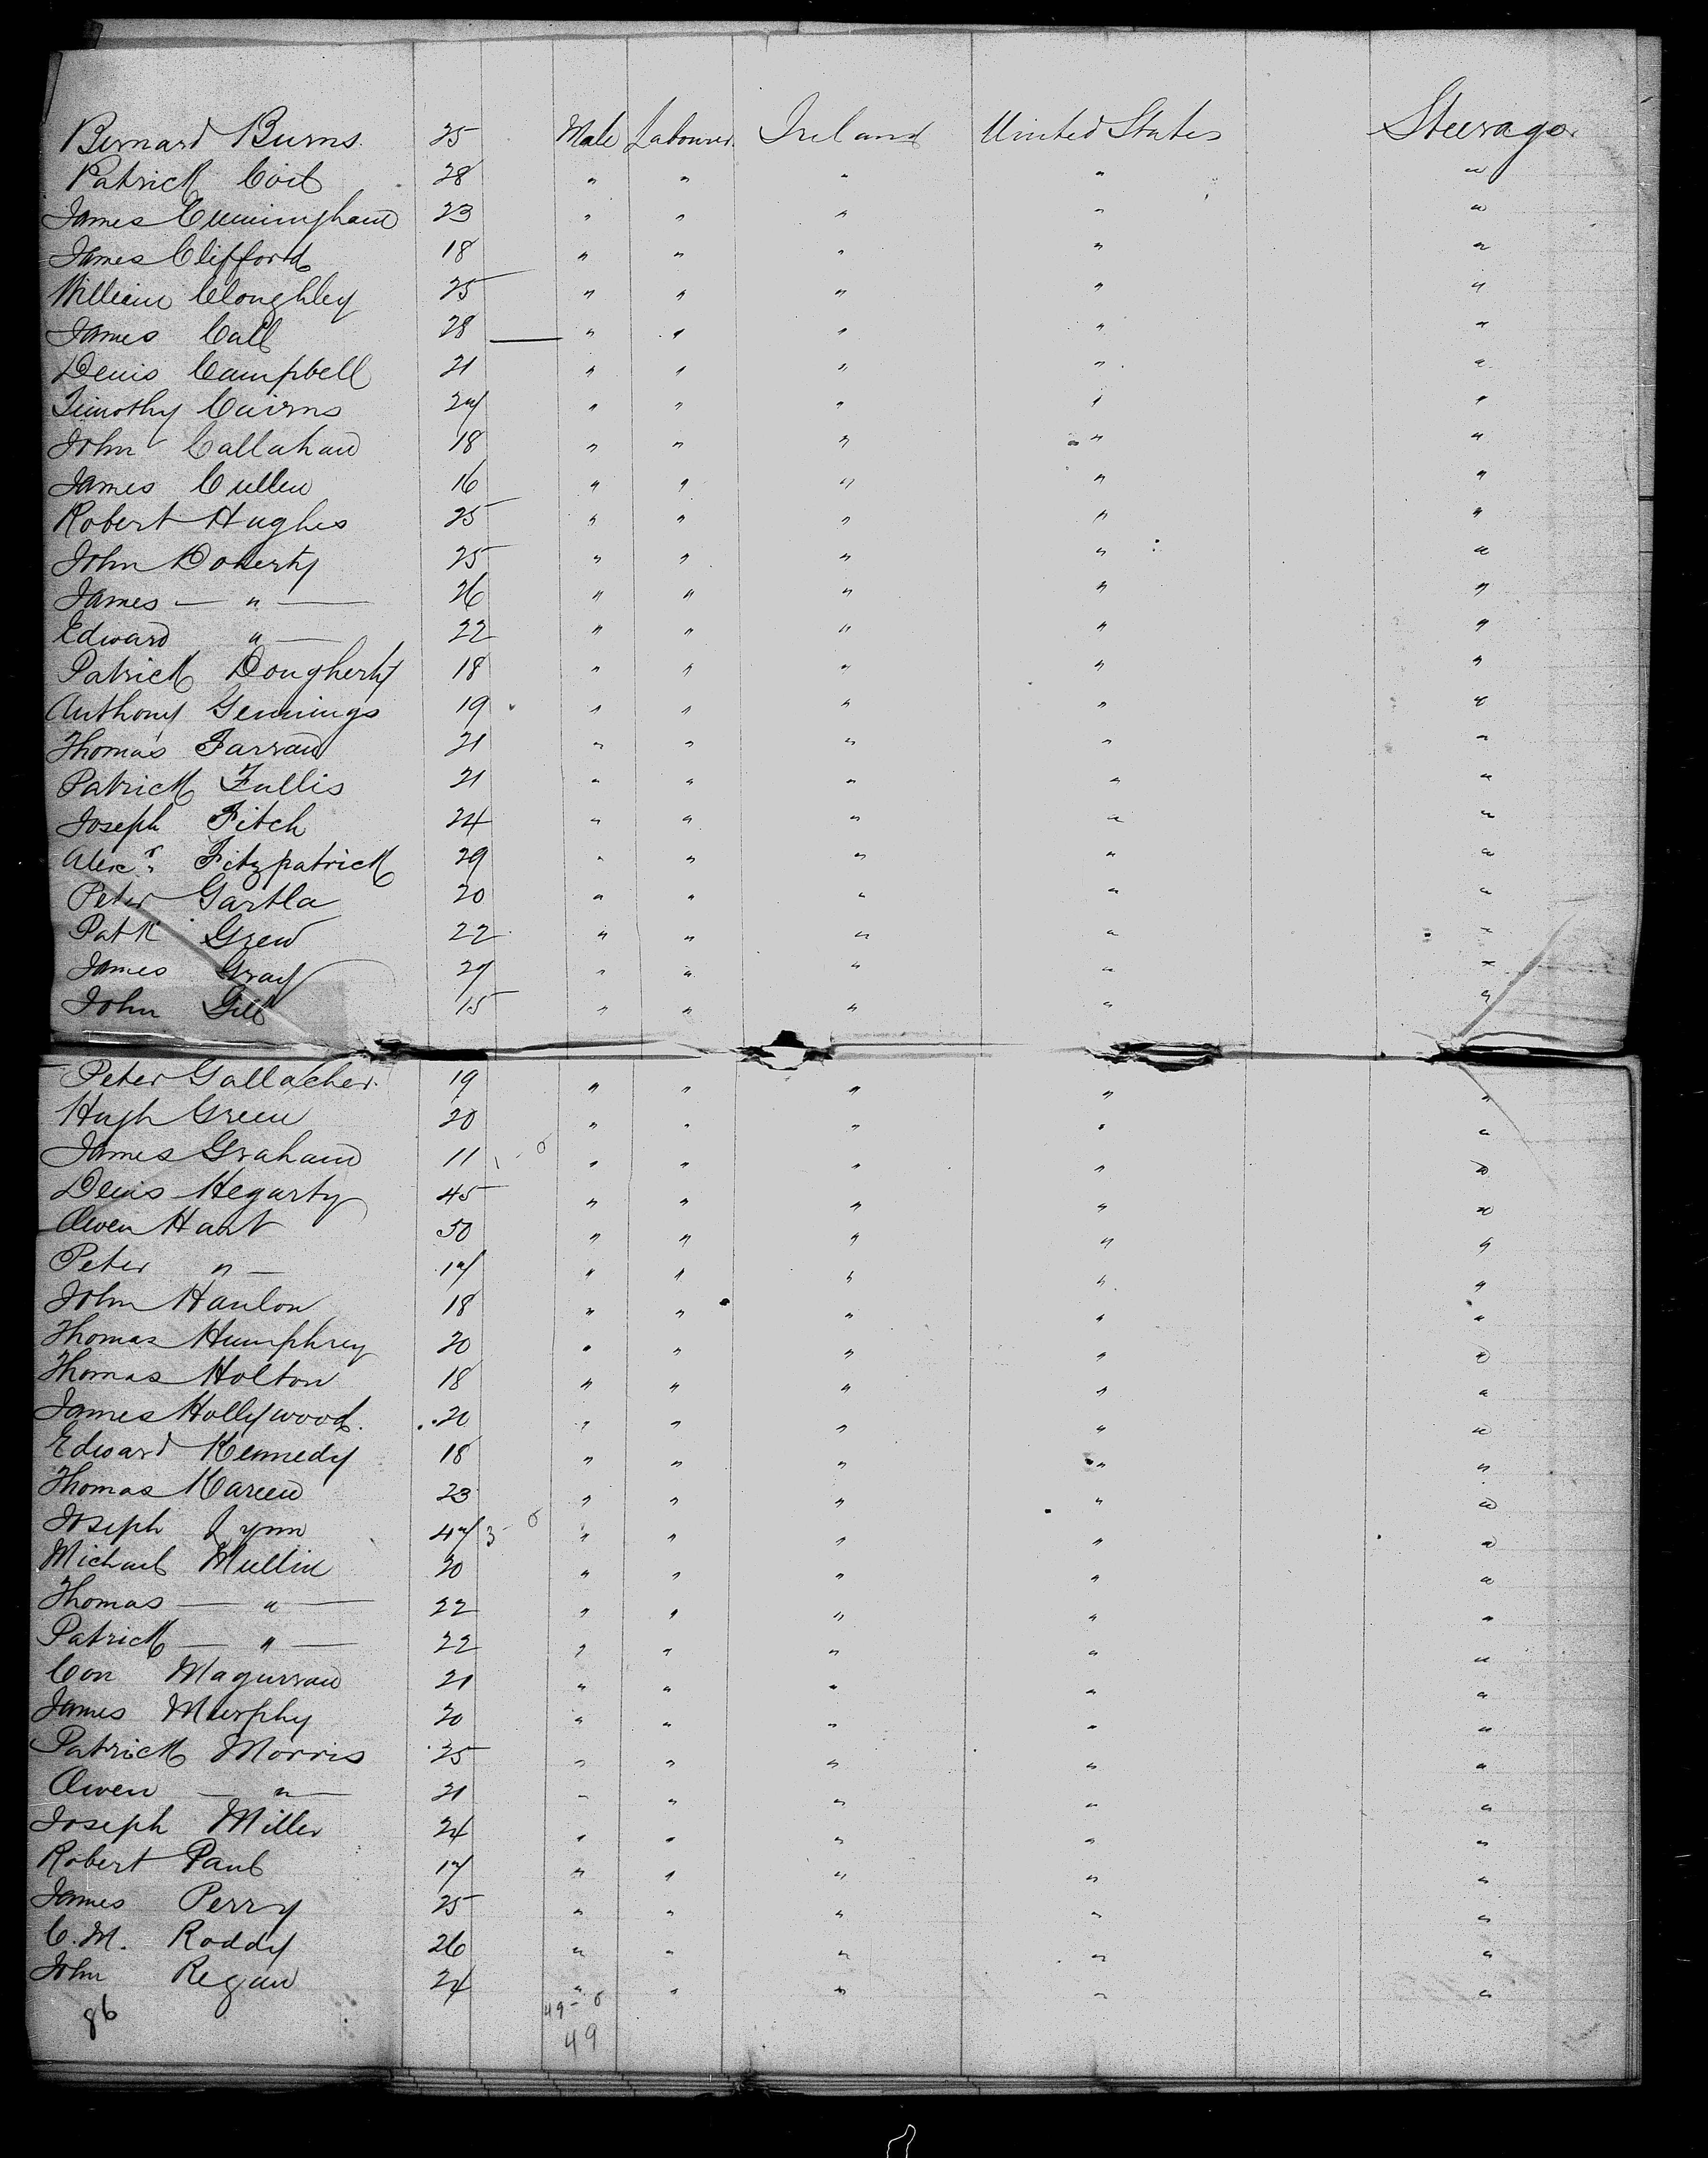 Bernard Burns 25 Male Labourer Ireland United States Steerage
Patrick Coil 28 " " " " "
James Cunningham 23 " " " " "
James Clifford 18 " " " " "
William Cloughley 25 " " " " "
James Call 28 — " " " " "
Denis Campbell 21 " " " " "
Timothy Cairns 27 " " " " "
John Callahan 18 " " " " "
James Cullen 16 " " " " "
Robert Hughes 25 " " " " "
John Doherty 25 " " " " "
James — " — 26 " " " " "
Edward " — 22 " " " " "
Patrick Dougherty 18 " " " " "
Anthony Gennings 19 " " " " "
Thomas Farran 21 " " " " "
Patrick Fallis 21 " " " " "
Joseph Fitch 24 " " " " "
Alexr. Fitzpatrick 29 " " " " "
Peter Gartla 20 " " " " "
Patk Grew 22 " " " " "
James Gray 27 " " " " "
John Gill 15 " " " " "
Peter Gallacher 19 " " " " "
Hugh Green 20 " " " " "
James Graham 11 " " " " "
Denis Hegarty 45 " " " " "
Owen Hart 50 " " " " "
Peter " — 17 " " " " "
John Hanlon 18 " " " " "
Thomas Humphrey 20 " " " " "
Thomas Holton 18 " " " " "
James Hollywood 20 " " " " "
Edward Kennedy 18 " " " " "
Thomas Kareen 23 " " " " "
Joseph Lynn 47 " " " " "
Michael Mullin 20 " " " " "
Thomas — " — 22 " " " " "
Patrick — " — 22 " " " " "
Con Magurran 21 " " " " "
James Murphy 20 " " " " "
Patrick Morris 25 " " " " "
Owen — " — 21 " " " " "
Joseph Miller 24 " " " " "
Robert Paul 17 " " " " "
James Perry 25 " " " " "
C. M. Roddy 26 " " " " "
John Regan 24 " " " " "
86 49
49